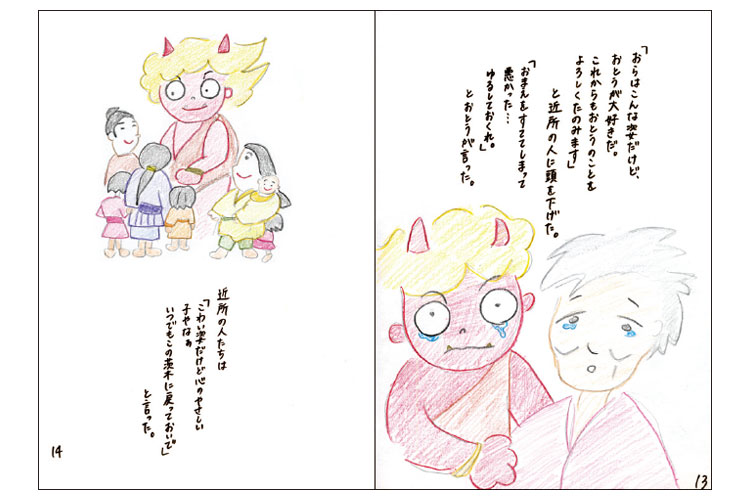 「おらはこんな姿だけど、
おとうが大好きだ。
これからもおとうのことを
よろしくたのみます」
と近所の人に頭を下げた。
「おまえをすててしまって
悪かった…
ゆるしておくれ。」
とおとうが言った。
13
近所の人たちは
「こわい姿だけど心のやさしい
子やなぁ
いつでもこの茨木に戻っておいで」
と言った。
14